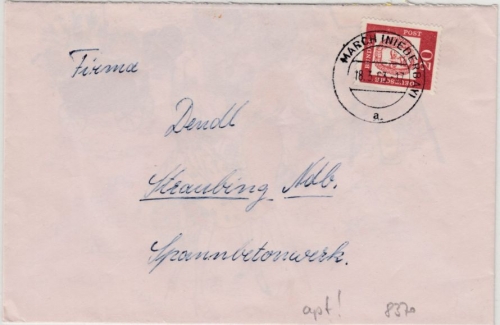 MARCH (NIEDERBAY)
POST
20
a
Firma
Dendl
Straubing Ndb.
Spannbetonwerk.
apt!
8370